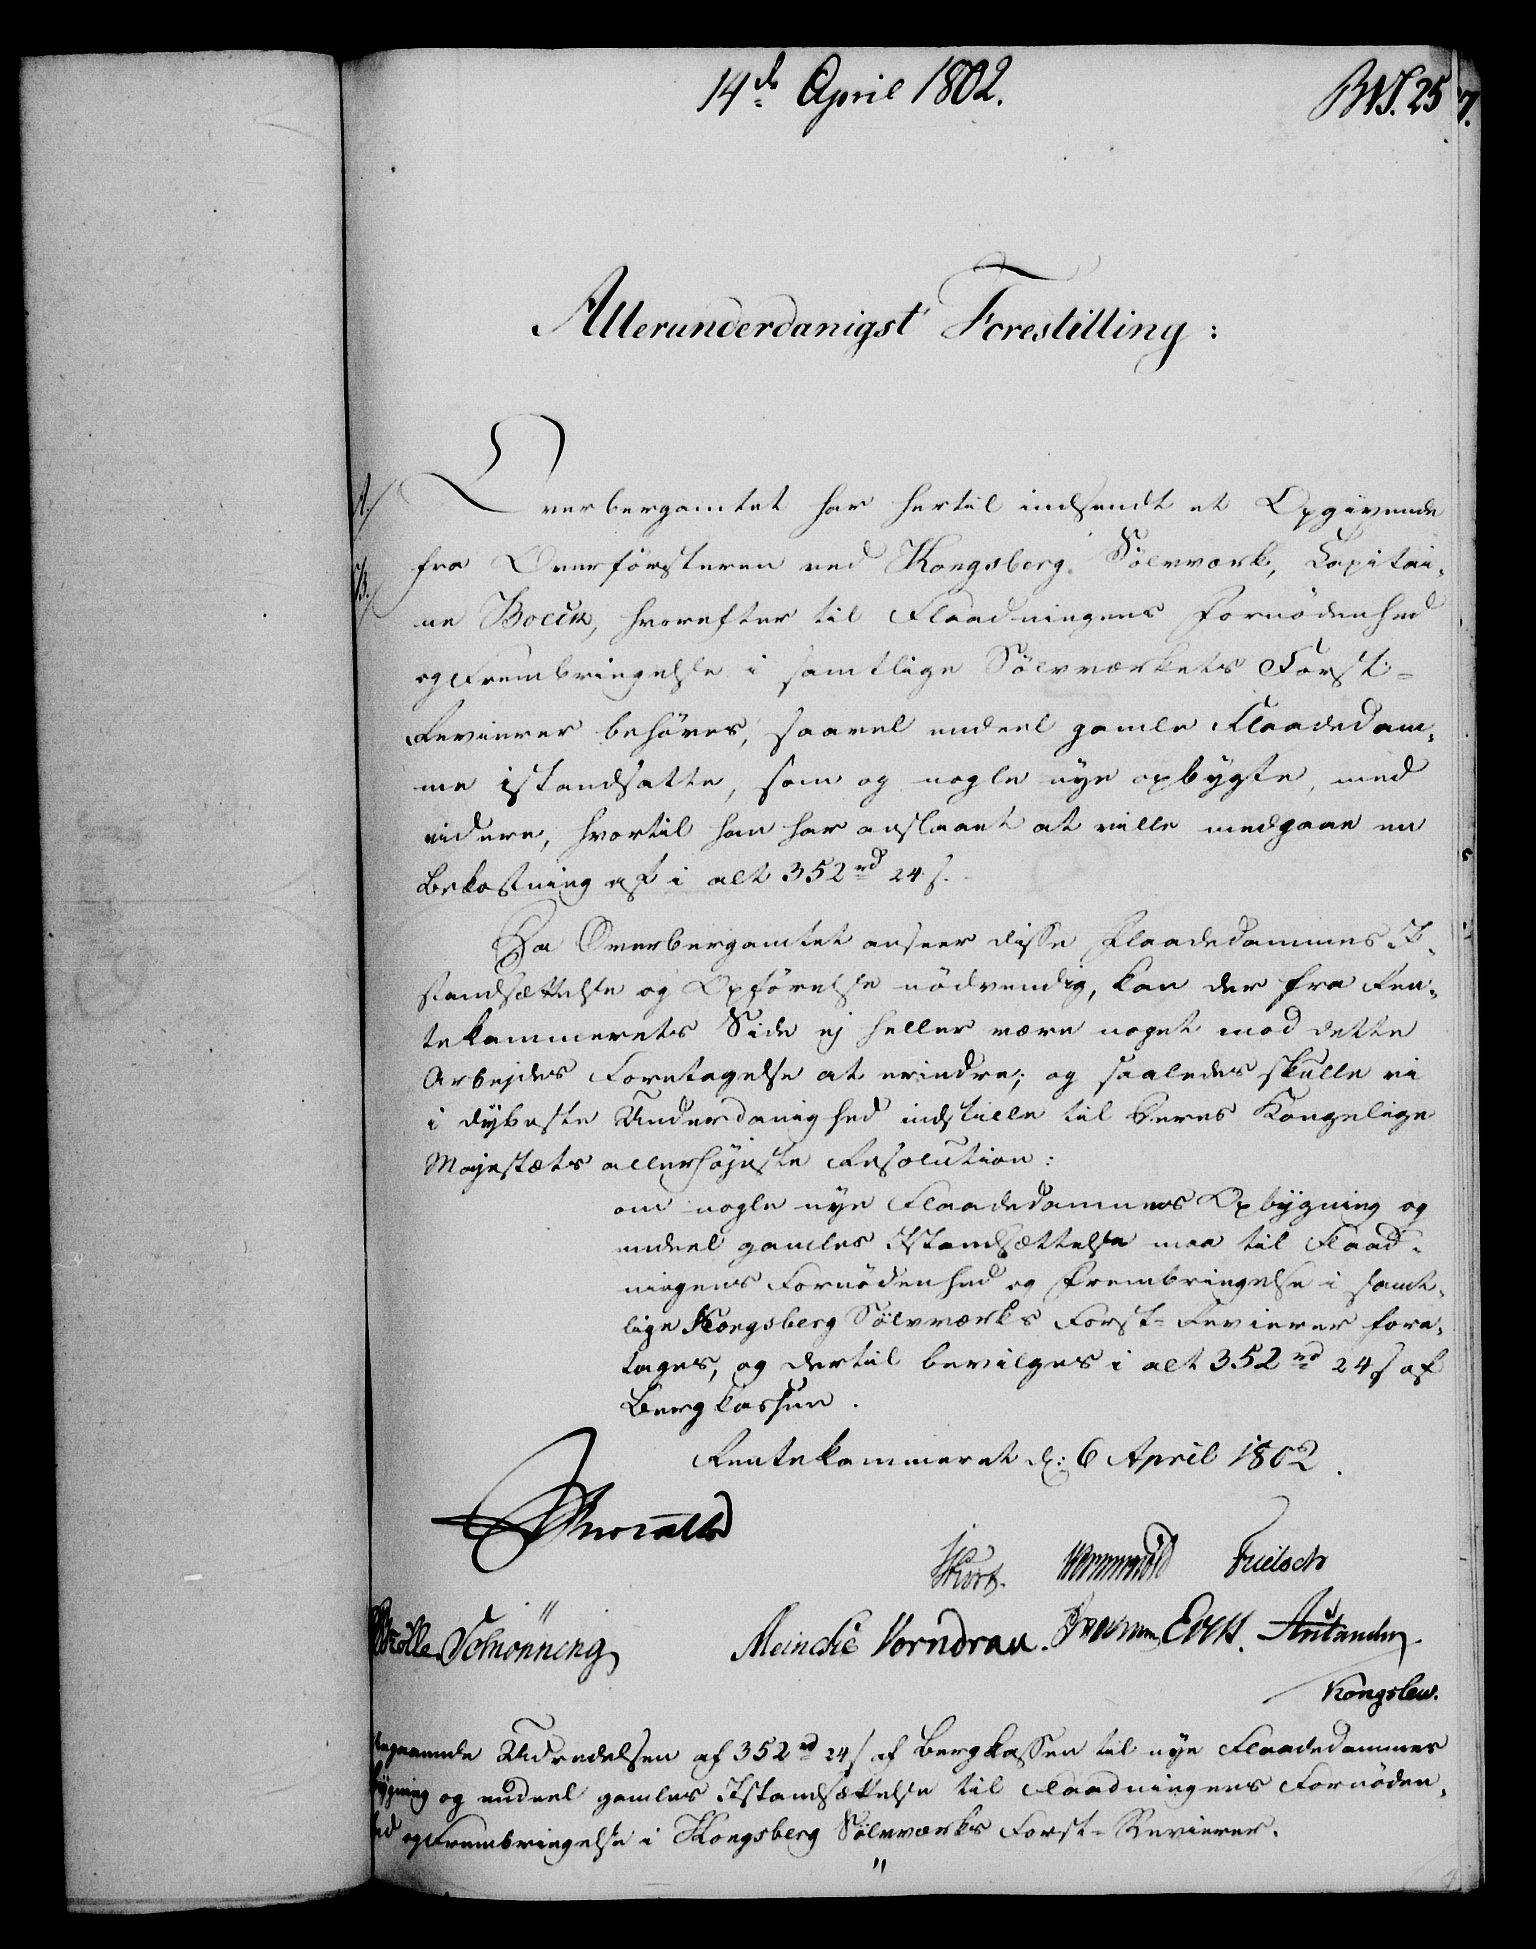 14de April 1802.
BNJ. 257.
Allerunderdanigst Forestilling:
A/
Overbergamtet har hertil indsendt et Opgivende
B/
fra Overförsteren ved Kongsberg Sölvværk, Capitai-
ne Boeck, hvorefter til Flaadningens Fornödenhed
og Frembringelse i samtlige Sölvværkets Forst-
Revierer behöves, saavel endeel gamle Flaadedam-
me istandsatte, som og nogle nye opbygte, med
videre, hvortil han har anslaaet at ville medgaae en
Bekostning af i alt 352 rd 24 s.
Da Overbergamtet anseer disse Flaadedammes I-
standsættelse og Opförelse nödvendig, kan der fra Ren-
tekammerets Side ej heller være noget mod dette
Arbejdes Foretagelse at erindre; og saaledes skulle vi
i dybeste Underdanighed indstille til Deres Kongelige
Majestæts allerhöjeste Resolution:
om nogle nye Flaadedammes Opbygning og
endeel gamles Istandsættelse maa til Flaad-
ningens Fornödenhed og Frembringelse i samt-
lige Kongsberg Sölvværks Forst-Revierer fore-
tages, og dertil bevilges i alt 352 rd 24 s af
Bergkassen.
Rentekammeret d: 6 April 1802.
Wormskiold
Schönning
Meincke Vorndran.
Kongslew.
Udredelsen af 352 rd 24 s af Bergkassen til nye Flaadedammes
og endeel gamles Istandsættelse til Flaadningens Fornöden-
hed og Frembringelse i Kongsberg Sölvværks Forst-Revierer.
"